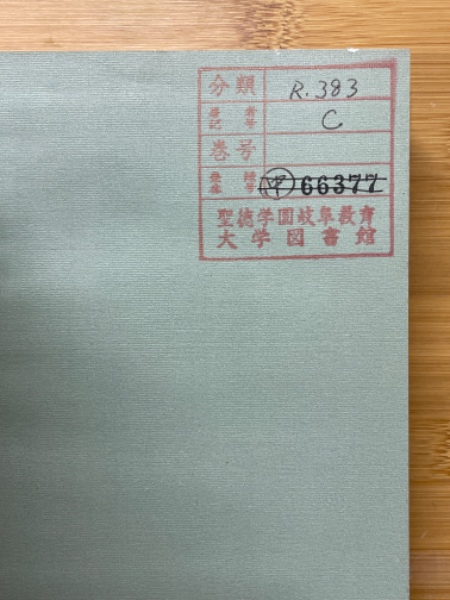 分類 R.383
著者記号 C
巻号
登録番号 中 66377
聖徳学園岐阜教育
大学図書館